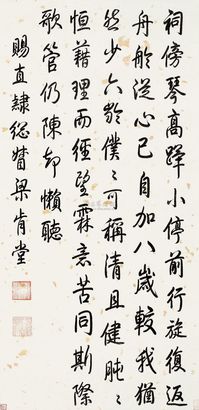 祠傍琴高蹕小停前行旋復返
舟舲從心已自加八歲較我猶
然少六齡僕〻可稱清且健肫〻
恒藉理而經望霖意苦同斯際
歌管仍陳却懶聽
賜直隸總督梁肯堂